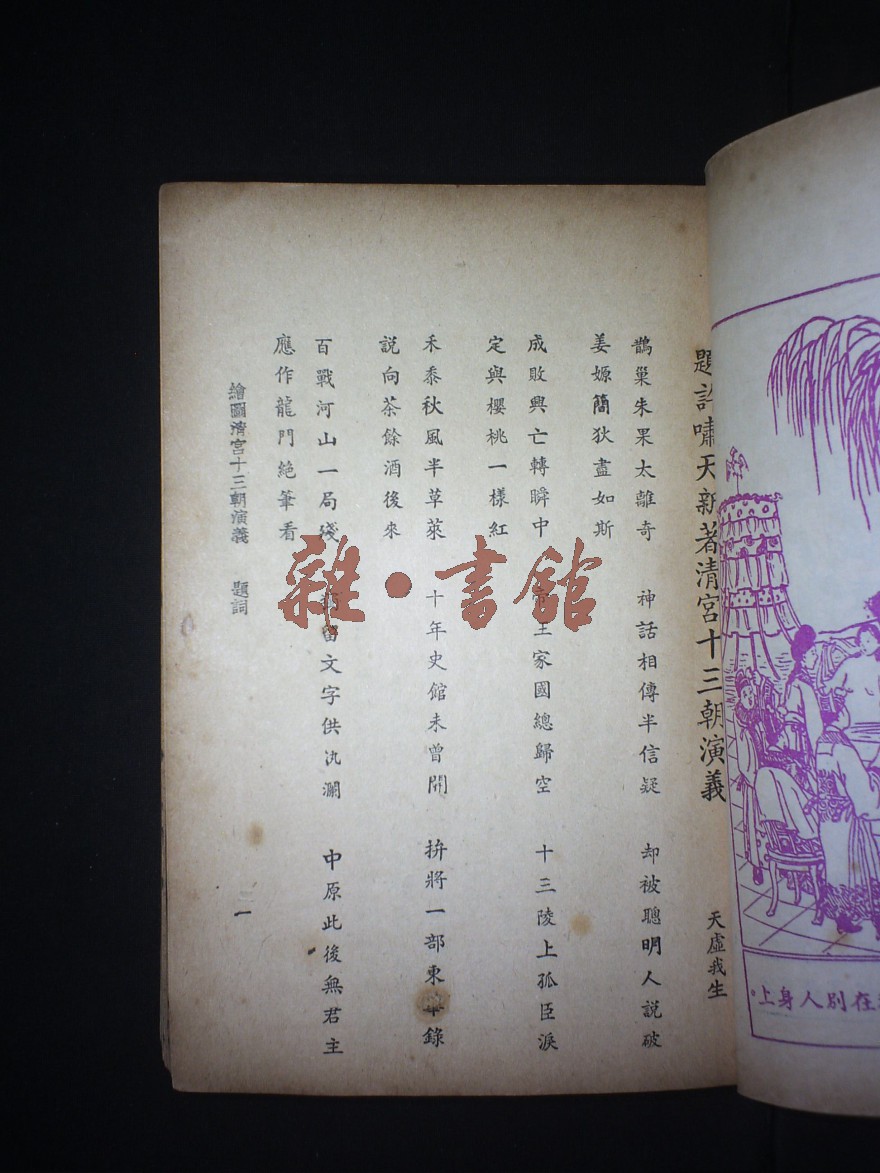 題許嘯天新著清宮十三朝演義
天虛我生
鵲巢朱果太離奇 神話相傳半信疑 却被聰明人説破
姜嫄簡狄盡如斯
成敗興亡轉瞬中 王家國總歸空 十三陵上孤臣淚
定與櫻桃一樣紅
禾黍秋風半草萊 十年史館未曾開 拚將一部東華錄
説向茶餘酒後來
百戰河山一局殘 留文字供汍瀾 中原此後無君主
應作龍門絶筆看
繪圖清宮十三朝演義 題詞
一
雜·書館
上身人別在